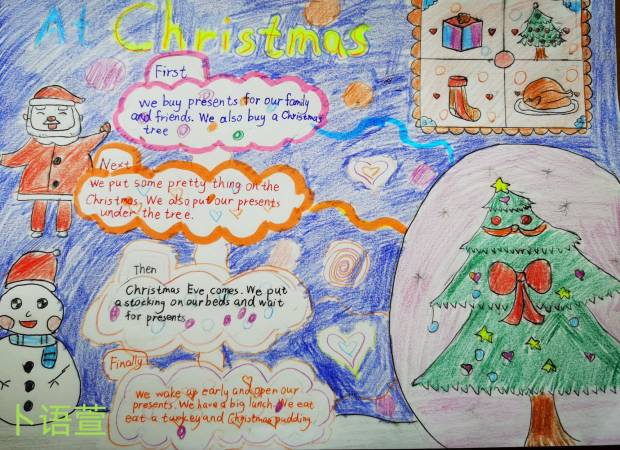 At Christmas
First
We buy presents for our family
and friends. We also buy a Christmas
tree
Next
We put some pretty thing on the
Christmas. We also put our presents
under the tree.
Then
Christmas Eve comes. We put
a stocking on our beds and wait
for presents.
Finally
We wake up early and open our
presents. We have a big lunch. We eat
eat a turkey and Christmas pudding.
卜语萱